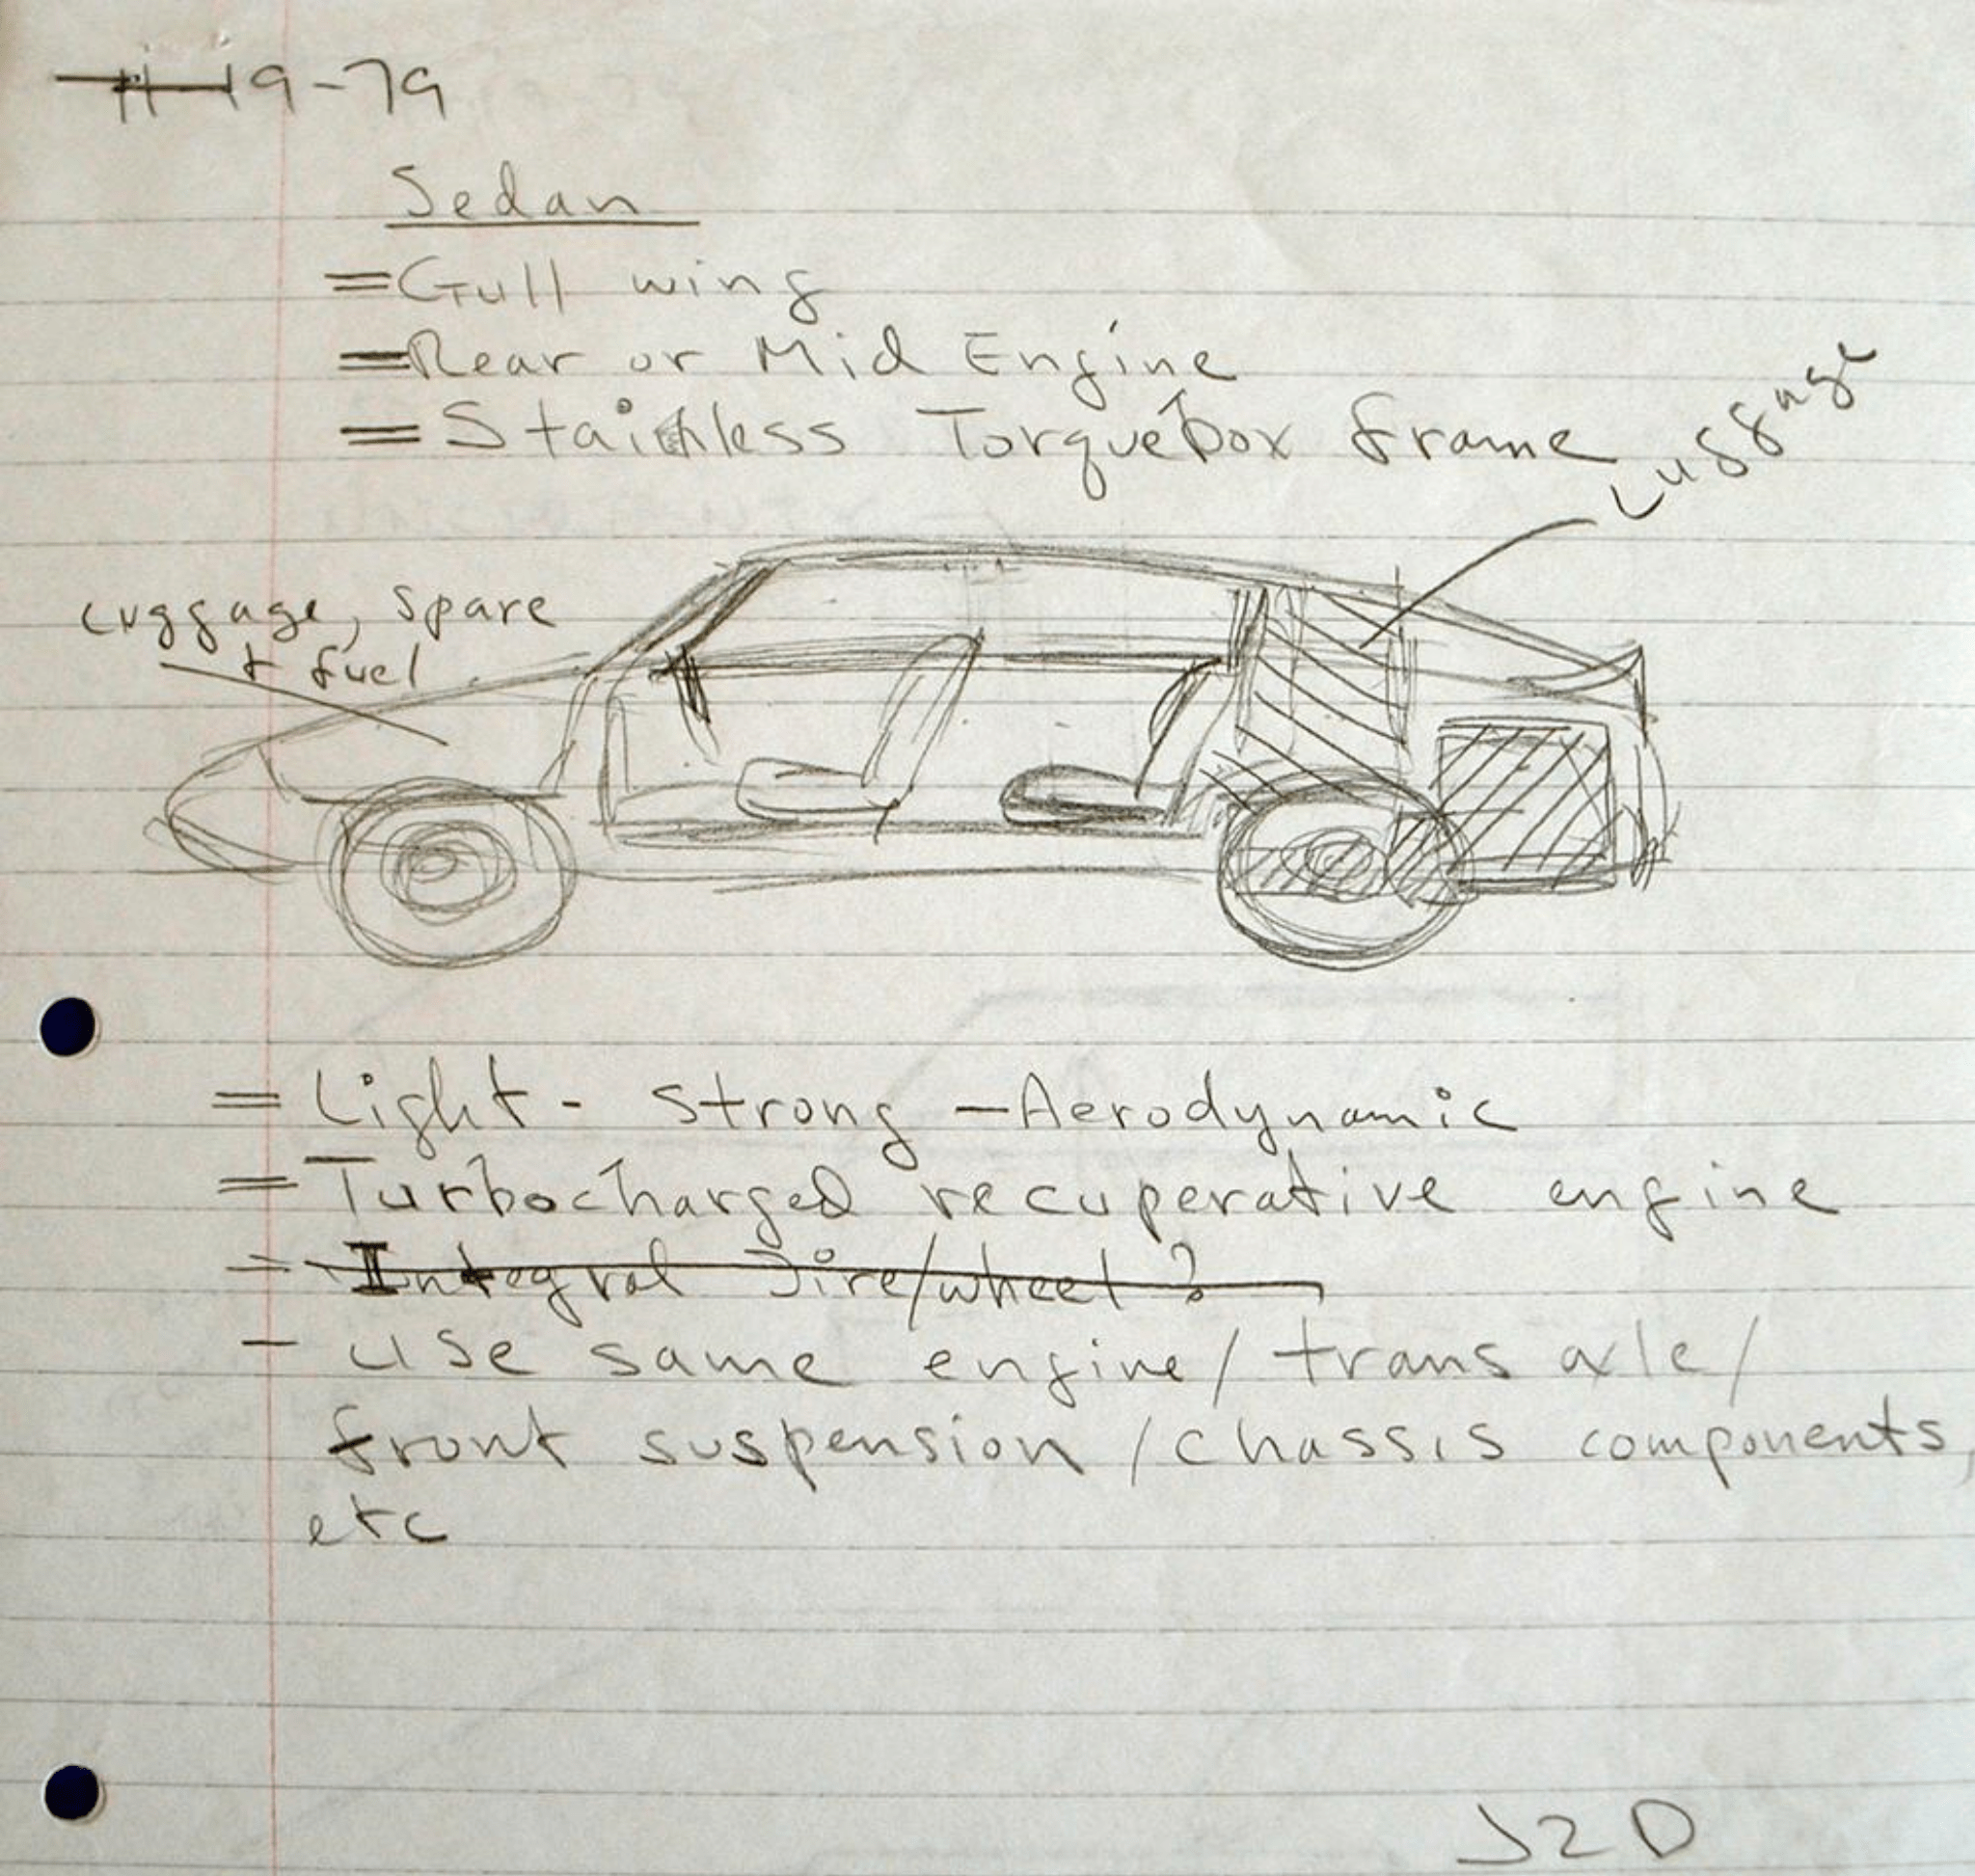 11-19-79
Sedan
= Gull wing
= Rear or Mid Engine
= Stainless Torquebox frame
Luggage
Luggage, spare
+ fuel
= Light - strong - Aerodynamic
= Turbocharged recuperative engine
= Integral Tire/wheel?
- use same engine/transaxle/
front suspension/chassis components,
etc
JZD